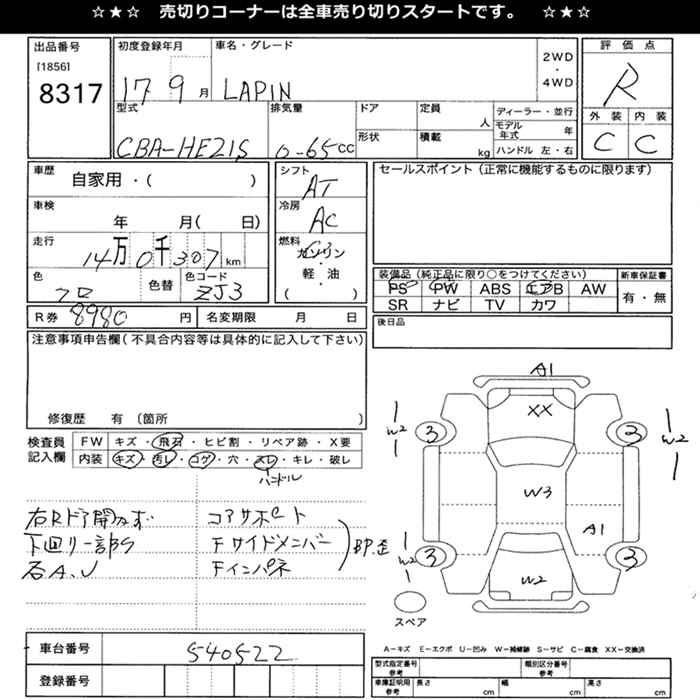 ☆★☆ 売切りコーナーは全車売り切りスタートです。 ☆★☆
出品番号
[1856]
8317
初度登録年月
17 9 月
車名・グレード
LAPIN
2WD
・
4WD
評価点
R
外装 内装
C C
型式
CBA-HE21S
排気量
0-65cc
ドア
形状
定員
人
積載
kg
ディーラー・並行
モデル年式 年
ハンドル 左・右
車歴
自家用・( )
車検
年 月( 日)
走行
14万0千307km
色
色替
色コード
ZJ3
シフト
AT
冷房
AC
燃料
ガソリン
・
軽・油
( )
セールスポイント(正常に機能するものに限ります)
装備品(純正品に限り○をつけてください)
新車保証書
PS PW ABS エアB AW
SR ナビ TV カワ
有・無
R券 8980 円
名変期限 月 日
後日品
注意事項申告欄(不具合内容等は具体的に記入して下さい)
修復歴 有 〔箇所 〕
検査員
記入欄
FW キズ・飛石・ヒビ割・リペア跡・X要
内装 キズ・汚レ・コゲ・穴・スレ・キレ・破レ
ハンドル
右Rドア開かず
下回り一部S
石A.U
コアサポート
Fサイドメンバー
Fインパネ
BP.歪
A1
XX
W3
A1
W2
3
3
3
3
W2
W2
W2
W2
スペア
A-キズ E-エクボ U-凹み W-補修跡 S-サビ C-腐食 XX-交換済
車台番号
540522
登録番号
型式指定番号
参考
類別区分番号
参考
車庫証明用
参考
長さ cm
幅 cm
高さ cm